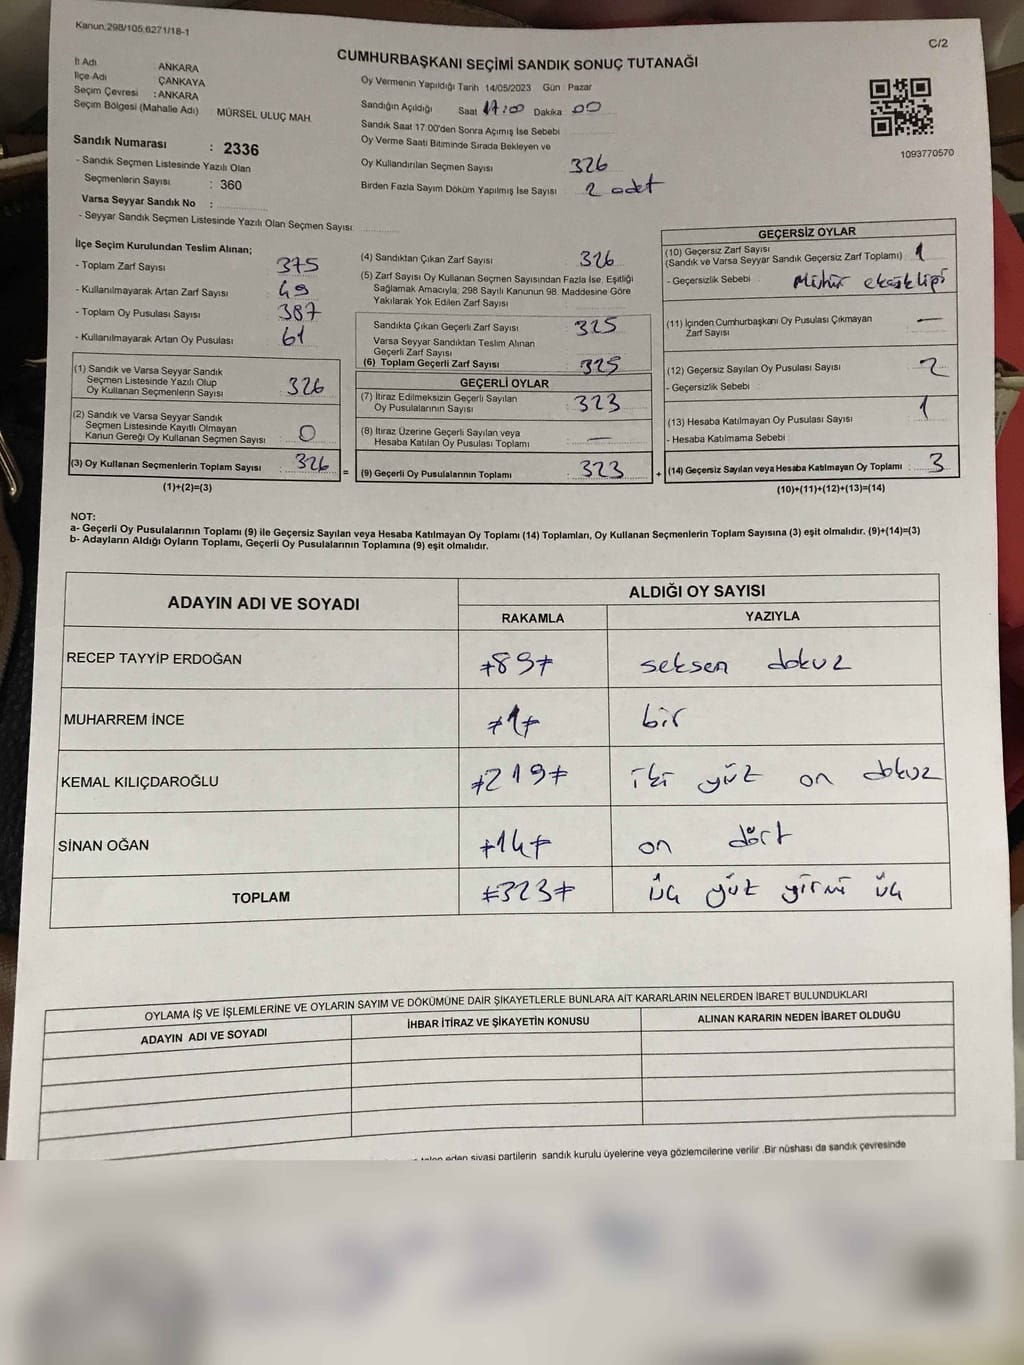 Kanun:298/105,6271/18-1
C/2
CUMHURBAŞKANI SEÇİMİ SANDIK SONUÇ TUTANAĞI
İl Adı ANKARA
İlçe Adı ÇANKAYA
Seçim Çevresi : ANKARA
Seçim Bölgesi (Mahalle Adı) MÜRSEL ULUÇ MAH.
Sandık Numarası : 2336
- Sandık Seçmen Listesinde Yazılı Olan
Seçmenlerin Sayısı : 360
Varsa Seyyar Sandık No :
- Seyyar Sandık Seçmen Listesinde Yazılı Olan Seçmen Sayısı
Oy Vermenin Yapıldığı Tarih 14/05/2023 Gün : Pazar
Sandığın Açıldığı Saat 17:00 Dakika 00
Sandık Saat 17.00'den Sonra Açımış İse Sebebi
Oy Verme Saati Bitiminde Sırada Bekleyen ve
Oy Kullandırılan Seçmen Sayısı 326
Birden Fazla Sayım Döküm Yapılmış İse Sayısı 2 adet
1093770570
İlçe Seçim Kurulundan Teslim Alınan;
- Toplam Zarf Sayısı 375
- Kullanılmayarak Artan Zarf Sayısı 49
- Toplam Oy Pusulası Sayısı 387
- Kullanılmayarak Artan Oy Pusulası 61
(1) Sandık ve Varsa Seyyar Sandık
Seçmen Listesinde Yazılı Olup
Oy Kullanan Seçmenlerin Sayısı : 326
(2) Sandık ve Varsa Seyyar Sandık
Seçmen Listesinde Kayıtlı Olmayan
Kanun Gereği Oy Kullanan Seçmen Sayısı : 0
(3) Oy Kullanan Seçmenlerin Toplam Sayısı : 326 =
(1)+(2)=(3)
(4) Sandıktan Çıkan Zarf Sayısı 326
(5) Zarf Sayısı Oy Kullanan Seçmen Sayısından Fazla İse, Eşitliği
Sağlamak Amacıyla; 298 Sayılı Kanunun 98. Maddesine Göre
Yakılarak Yok Edilen Zarf Sayısı
Sandıkta Çıkan Geçerli Zarf Sayısı 325
Varsa Seyyar Sandıktan Teslim Alınan
Geçerli Zarf Sayısı
(6) Toplam Geçerli Zarf Sayısı 325
GEÇERLİ OYLAR
(7) İtiraz Edilmeksizin Geçerli Sayılan
Oy Pusulalarının Sayısı 323
(8) İtiraz Üzerine Geçerli Sayılan veya
Hesaba Katılan Oy Pusulası Toplamı —
(9) Geçerli Oy Pusulalarının Toplamı : 323 +
GEÇERSİZ OYLAR
(10) Geçersiz Zarf Sayısı
(Sandık ve Varsa Seyyar Sandık Geçersiz Zarf Toplamı) : 1
- Geçersizlik Sebebi Mühür eksikliği
(11) İçinden Cumhurbaşkanı Oy Pusulası Çıkmayan
Zarf Sayısı —
(12) Geçersiz Sayılan Oy Pusulası Sayısı 2
- Geçersizlik Sebebi :
(13) Hesaba Katılmayan Oy Pusulası Sayısı 1
- Hesaba Katılmama Sebebi :
(14) Geçersiz Sayılan veya Hesaba Katılmayan Oy Toplamı : 3
(10)+(11)+(12)+(13)=(14)
NOT:
a- Geçerli Oy Pusulalarının Toplamı (9) ile Geçersiz Sayılan veya Hesaba Katılmayan Oy Toplamı (14) Toplamları, Oy Kullanan Seçmenlerin Toplam Sayısına (3) eşit olmalıdır. (9)+(14)=(3)
b- Adayların Aldığı Oyların Toplamı, Geçerli Oy Pusulalarının Toplamına (9) eşit olmalıdır.
ADAYIN ADI VE SOYADI ALDIĞI OY SAYISI
RAKAMLA YAZIYLA
RECEP TAYYİP ERDOĞAN ≠89≠ seksen dokuz
MUHARREM İNCE ≠1≠ bir
KEMAL KILIÇDAROĞLU ≠219≠ iki yüz on dokuz
SİNAN OĞAN ≠14≠ on dört
TOPLAM ≠323≠ üç yüz yirmi üç
OYLAMA İŞ VE İŞLEMLERİNE VE OYLARIN SAYIM VE DÖKÜMÜNE DAİR ŞİKAYETLERLE BUNLARA AİT KARARLARIN NELERDEN İBARET BULUNDUKLARI
ADAYIN ADI VE SOYADI İHBAR İTİRAZ VE ŞİKAYETİN KONUSU ALINAN KARARIN NEDEN İBARET OLDUĞU
eden siyasi partilerin sandık kurulu üyelerine veya gözlemcilerine verilir .Bir nüshası da sandık çevresinde